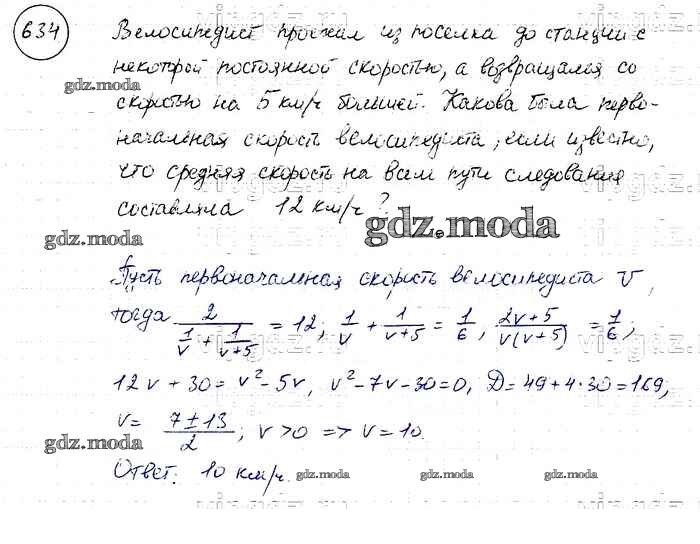 634
Велосипедист проехал из поселка до станции с
некоторой постоянной скоростью, а возвращался со
скоростью на 5 км/ч большей. Какова была перво-
начальная скорость велосипедиста, если известно,
что средняя скорость на всем пути следования
составляла 12 км/ч?
Пусть первоначальная скорость велосипедиста v,
тогда 2/(1/v + 1/(v+5)) = 12; 1/v + 1/(v+5) = 1/6, (2v+5)/(v(v+5)) = 1/6;
12v + 30 = v² - 5v, v² - 7v - 30 = 0, D = 49 + 4·30 = 169,
v = (7±13)/2; v > 0 => v = 10.
Ответ: 10 км/ч.
gdz.moda
gdz.moda
gdz.moda
gdz.moda
gdz.moda
gdz.moda
gdz.moda
gdz.moda
gdz.moda